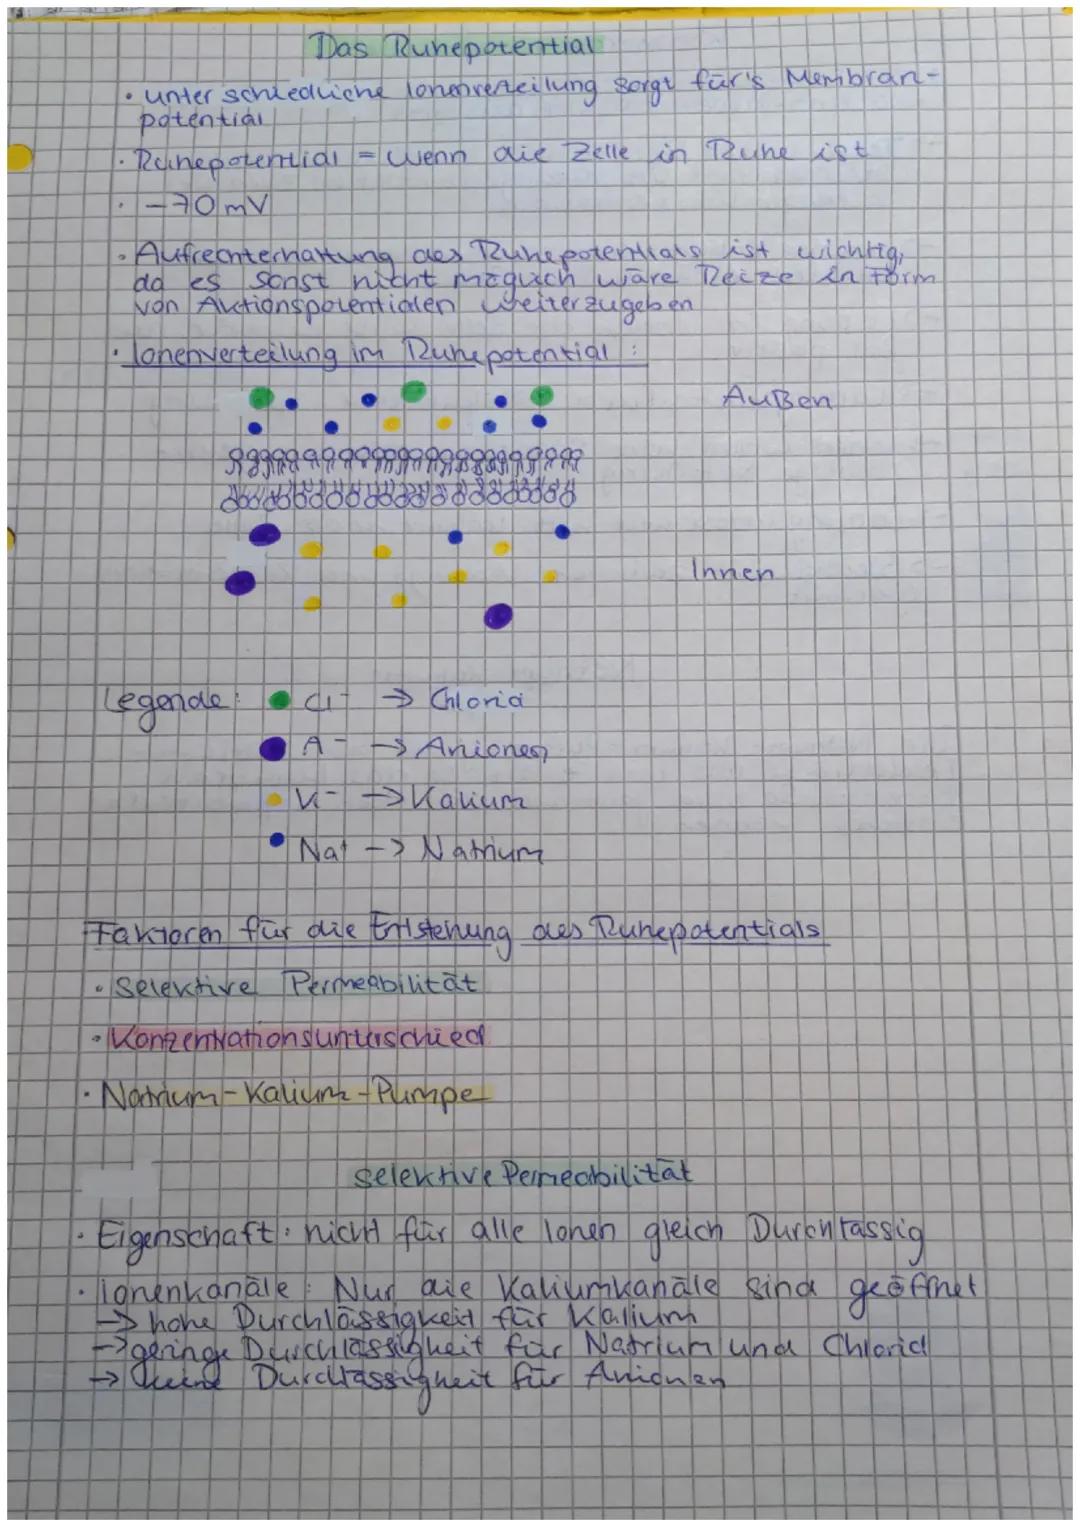 Das Ruhepotential
• unterschiedliche Ionenverteilung sorgt für's Membran-
potential
• Ruhepotential = wenn die Zelle in Ruhe ist
• -70 mV
• Aufrechterhaltung des Ruhepotentials ist wichtig,
da es sonst nicht möglich wäre Reize in Form
von Aktionspotentialen weiterzugeben
• Ionenverteilung im Ruhepotential :
Außen
Innen
Legende: Cl⁻ → Chlorid
A⁻ → Anionen
K⁻ → Kalium
Na⁺ → Natrium
Faktoren für die Entstehung des Ruhepotentials
• Selektive Permeabilität
• Konzentrationsunterschied
• Natrium-Kalium-Pumpe
selektive Permeabilität
• Eigenschaft: nicht für alle Ionen gleich Durchlässig
• Ionenkanäle: Nur die Kaliumkanäle sind geöffnet
→ hohe Durchlässigkeit für Kalium
→ geringe Durchlässigkeit für Natrium und Chlorid
→ keine Durchlässigkeit für Anionen